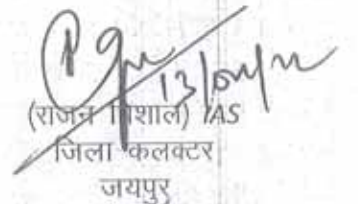 13/04/22
(राजन विशाल) IAS
जिला कलक्टर
जयपुर